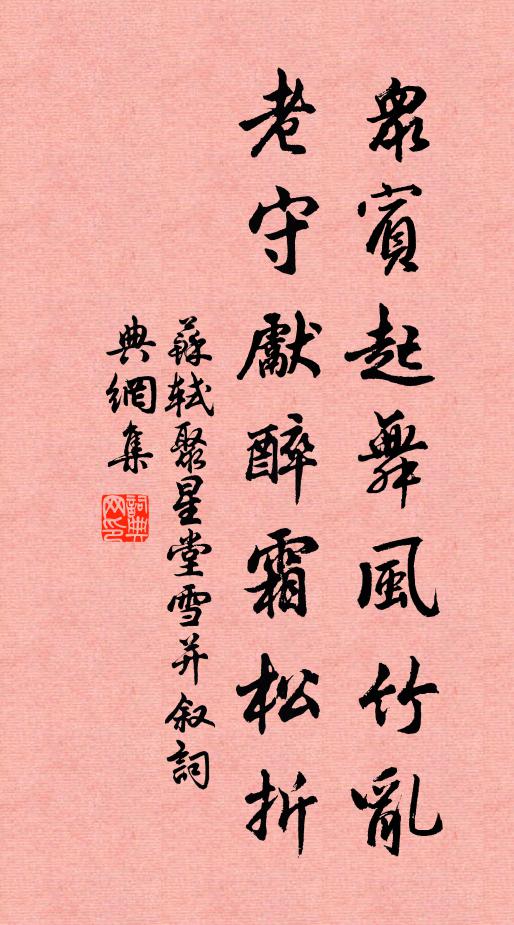 眾賓起舞風竹亂
老守獻醉霜松折
蘇軾聚星堂雪并叙詞
典網集
詞典网印